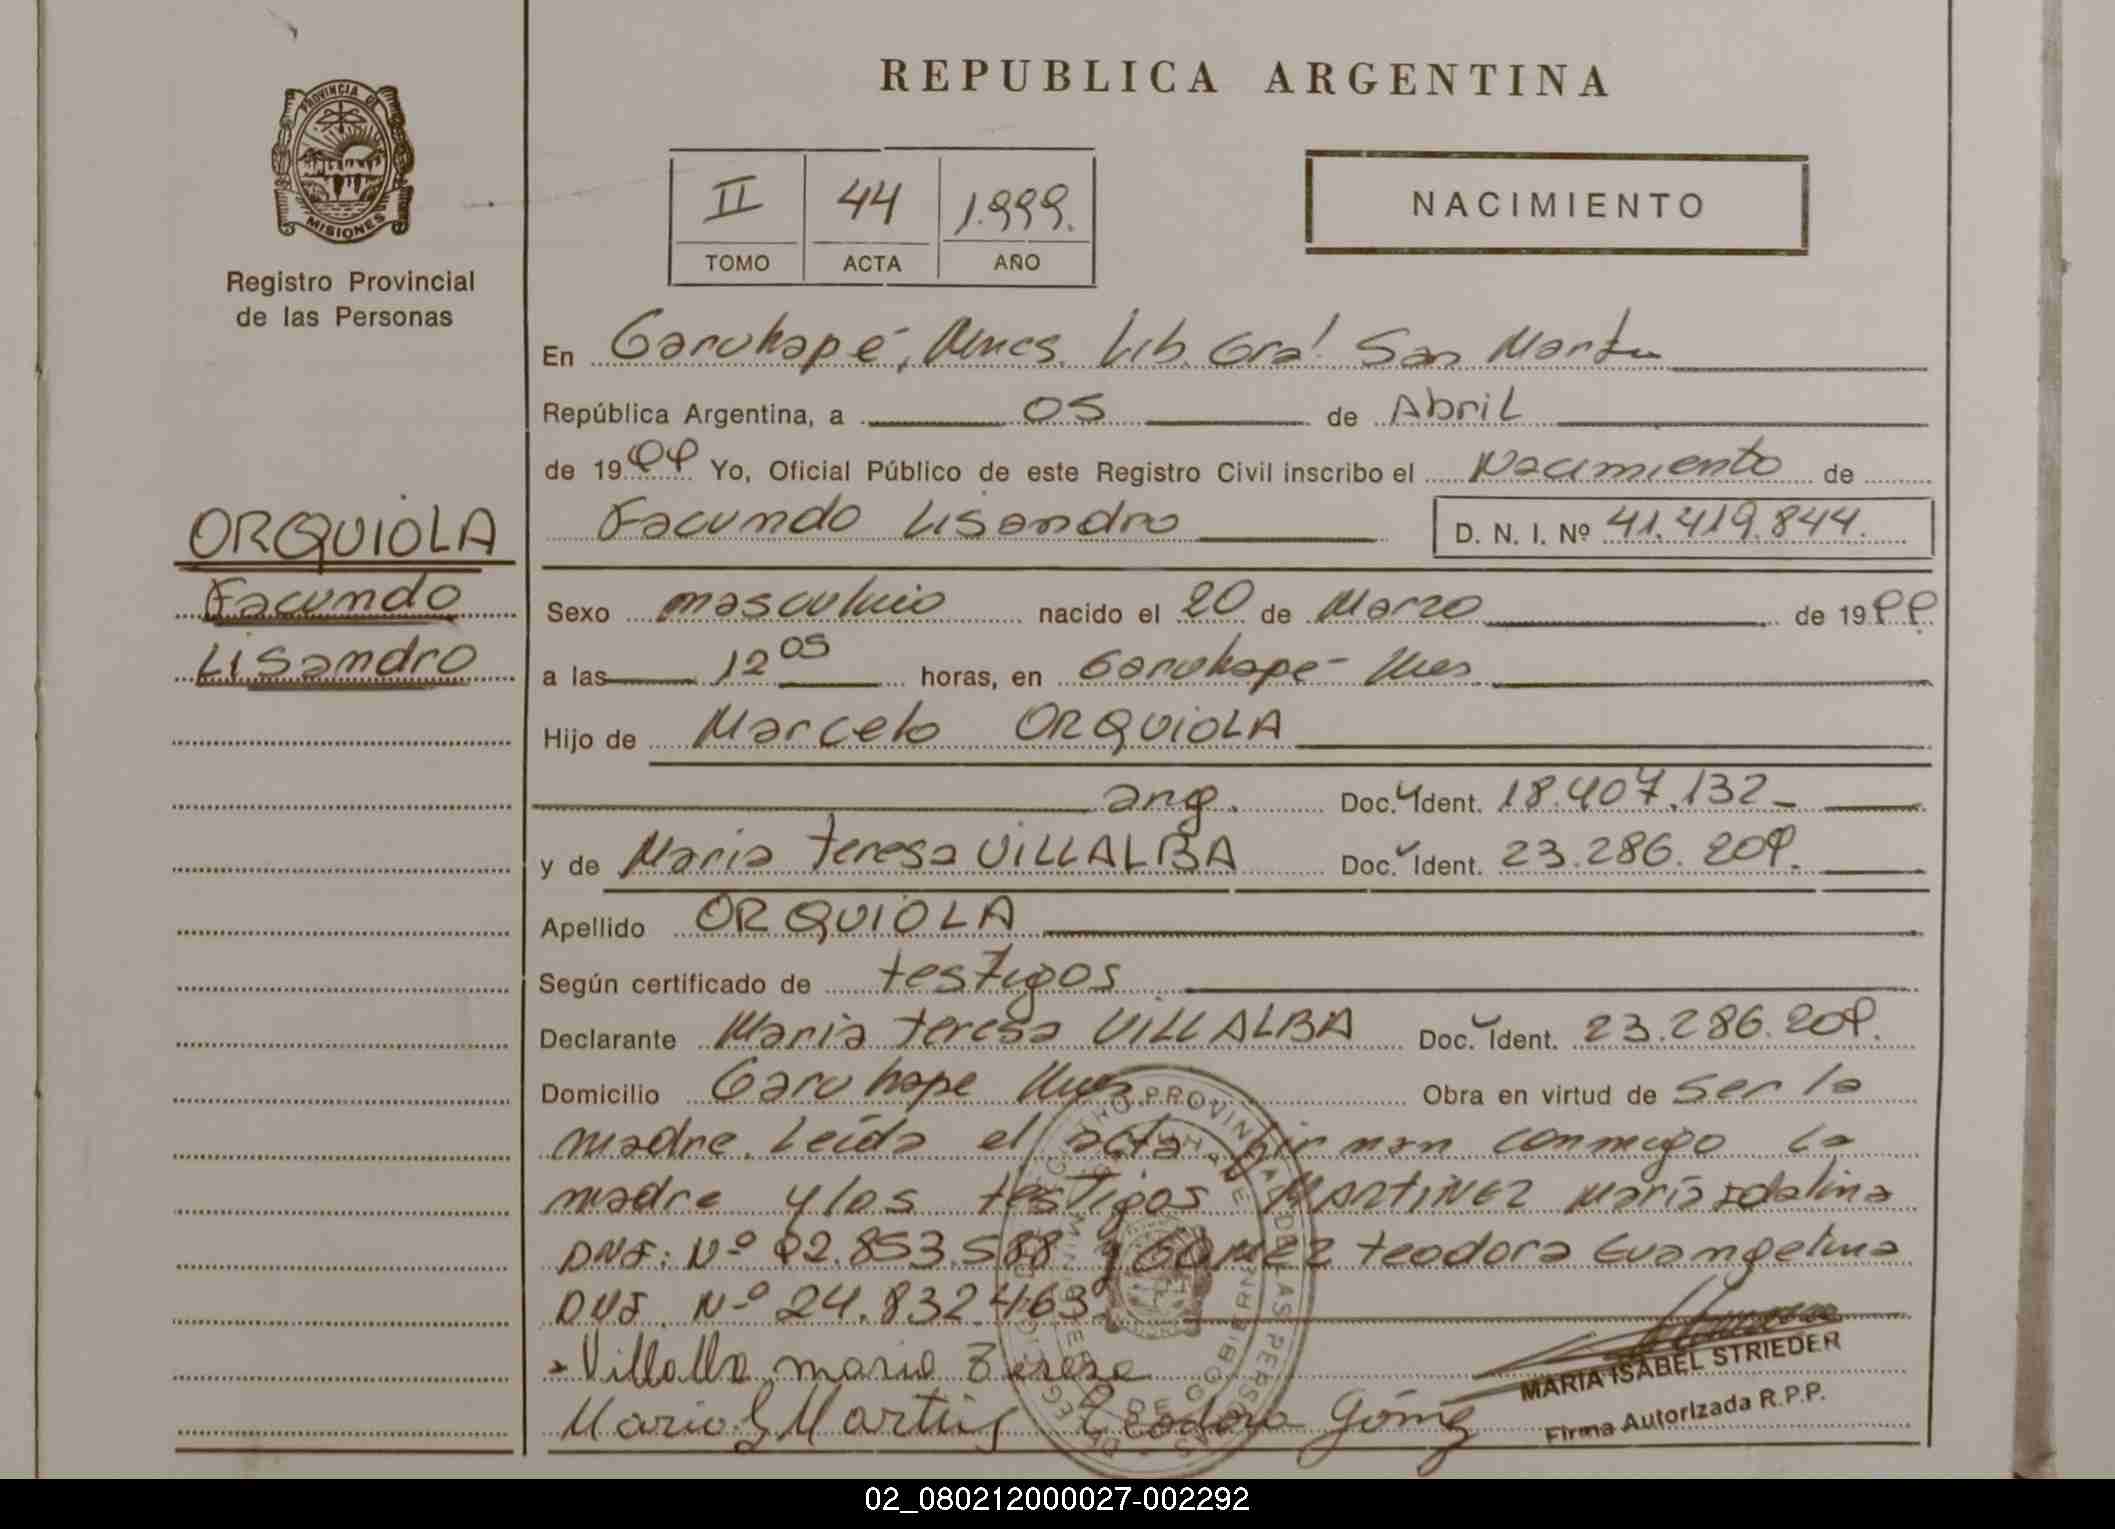 REPUBLICA ARGENTINA
PROVINCIA DE
MISIONES
Registro Provincial
de las Personas
II 44 1.999.
TOMO ACTA AÑO
NACIMIENTO
En Garuhapé, Mnes. Lib. Gral San Martín
República Argentina, a 05 de Abril
de 1999 Yo, Oficial Público de este Registro Civil inscribo el Nacimiento de
Facundo Lisandro D. N. I. Nº 41.419.844.
ORQUIOLA
Facundo
Lisandro
Sexo masculino nacido el 20 de Marzo de 1999.
a las 12 05 horas, en Garuhapé - Mnes
Hijo de Marcelo ORQUIOLA
arg. Doc. Ident. 18.407.132_
y de Maria teresa VILLALBA Doc. Ident. 23.286.209.
Apellido ORQUIOLA
Según certificado de testigos
Declarante Maria teresa VILLALBA Doc. Ident. 23.286.209.
Domicilio Garuhape Mnes. Obra en virtud de ser la
madre. Leída el acta firman conmigo la
madre y los testigos MARTINEZ María Idalina
DNI: Nº 92.853.588 y GOMEZ teodora Evangelina
DNI. Nº 24.832.463.
Villalba maria Terese
Maria I Martines Teodora Gómez
MARIA ISABEL STRIEDER
Firma Autorizada R.P.P.
02_080212000027-002292